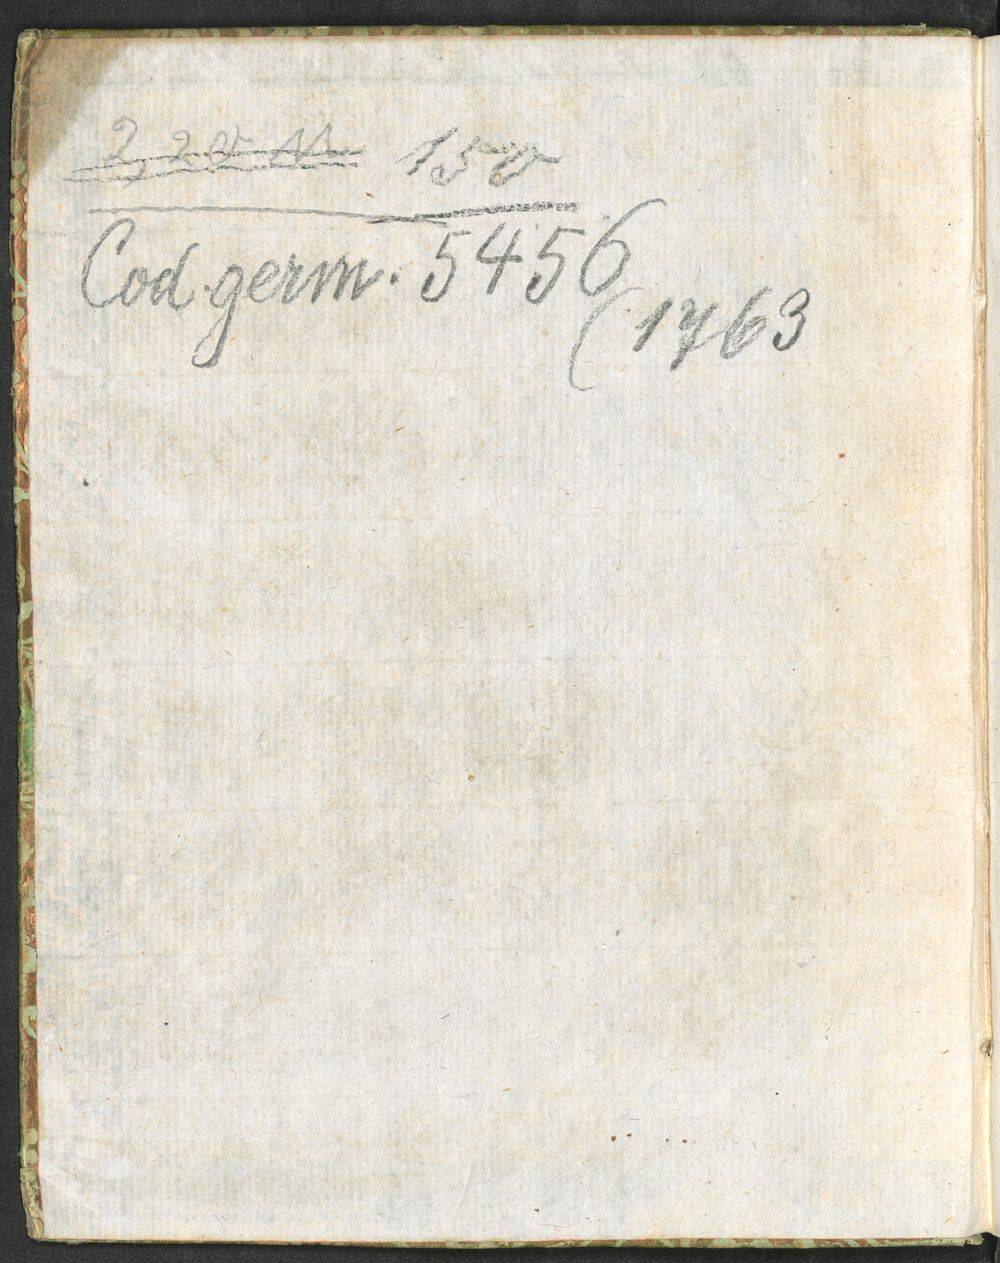 150
Cod. germ. 5456
(1763